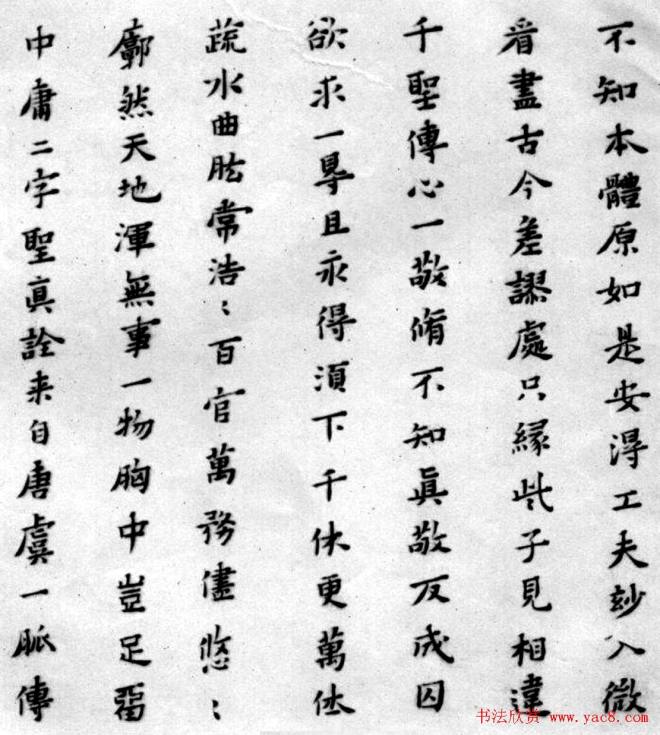 不知本體原如是安得工夫妙入微
看盡古今差謬處只緣些子見相違
千聖傳心一敬脩不知真敬反成囚
欲求一得且永得須下千休更萬休
蔬水曲肱常浩〻百官萬務儘悠〻
廓然天地渾無事一物胸中豈足留
中庸二字聖真詮来自唐虞一脈傳
书法欣赏 www.yac8.com